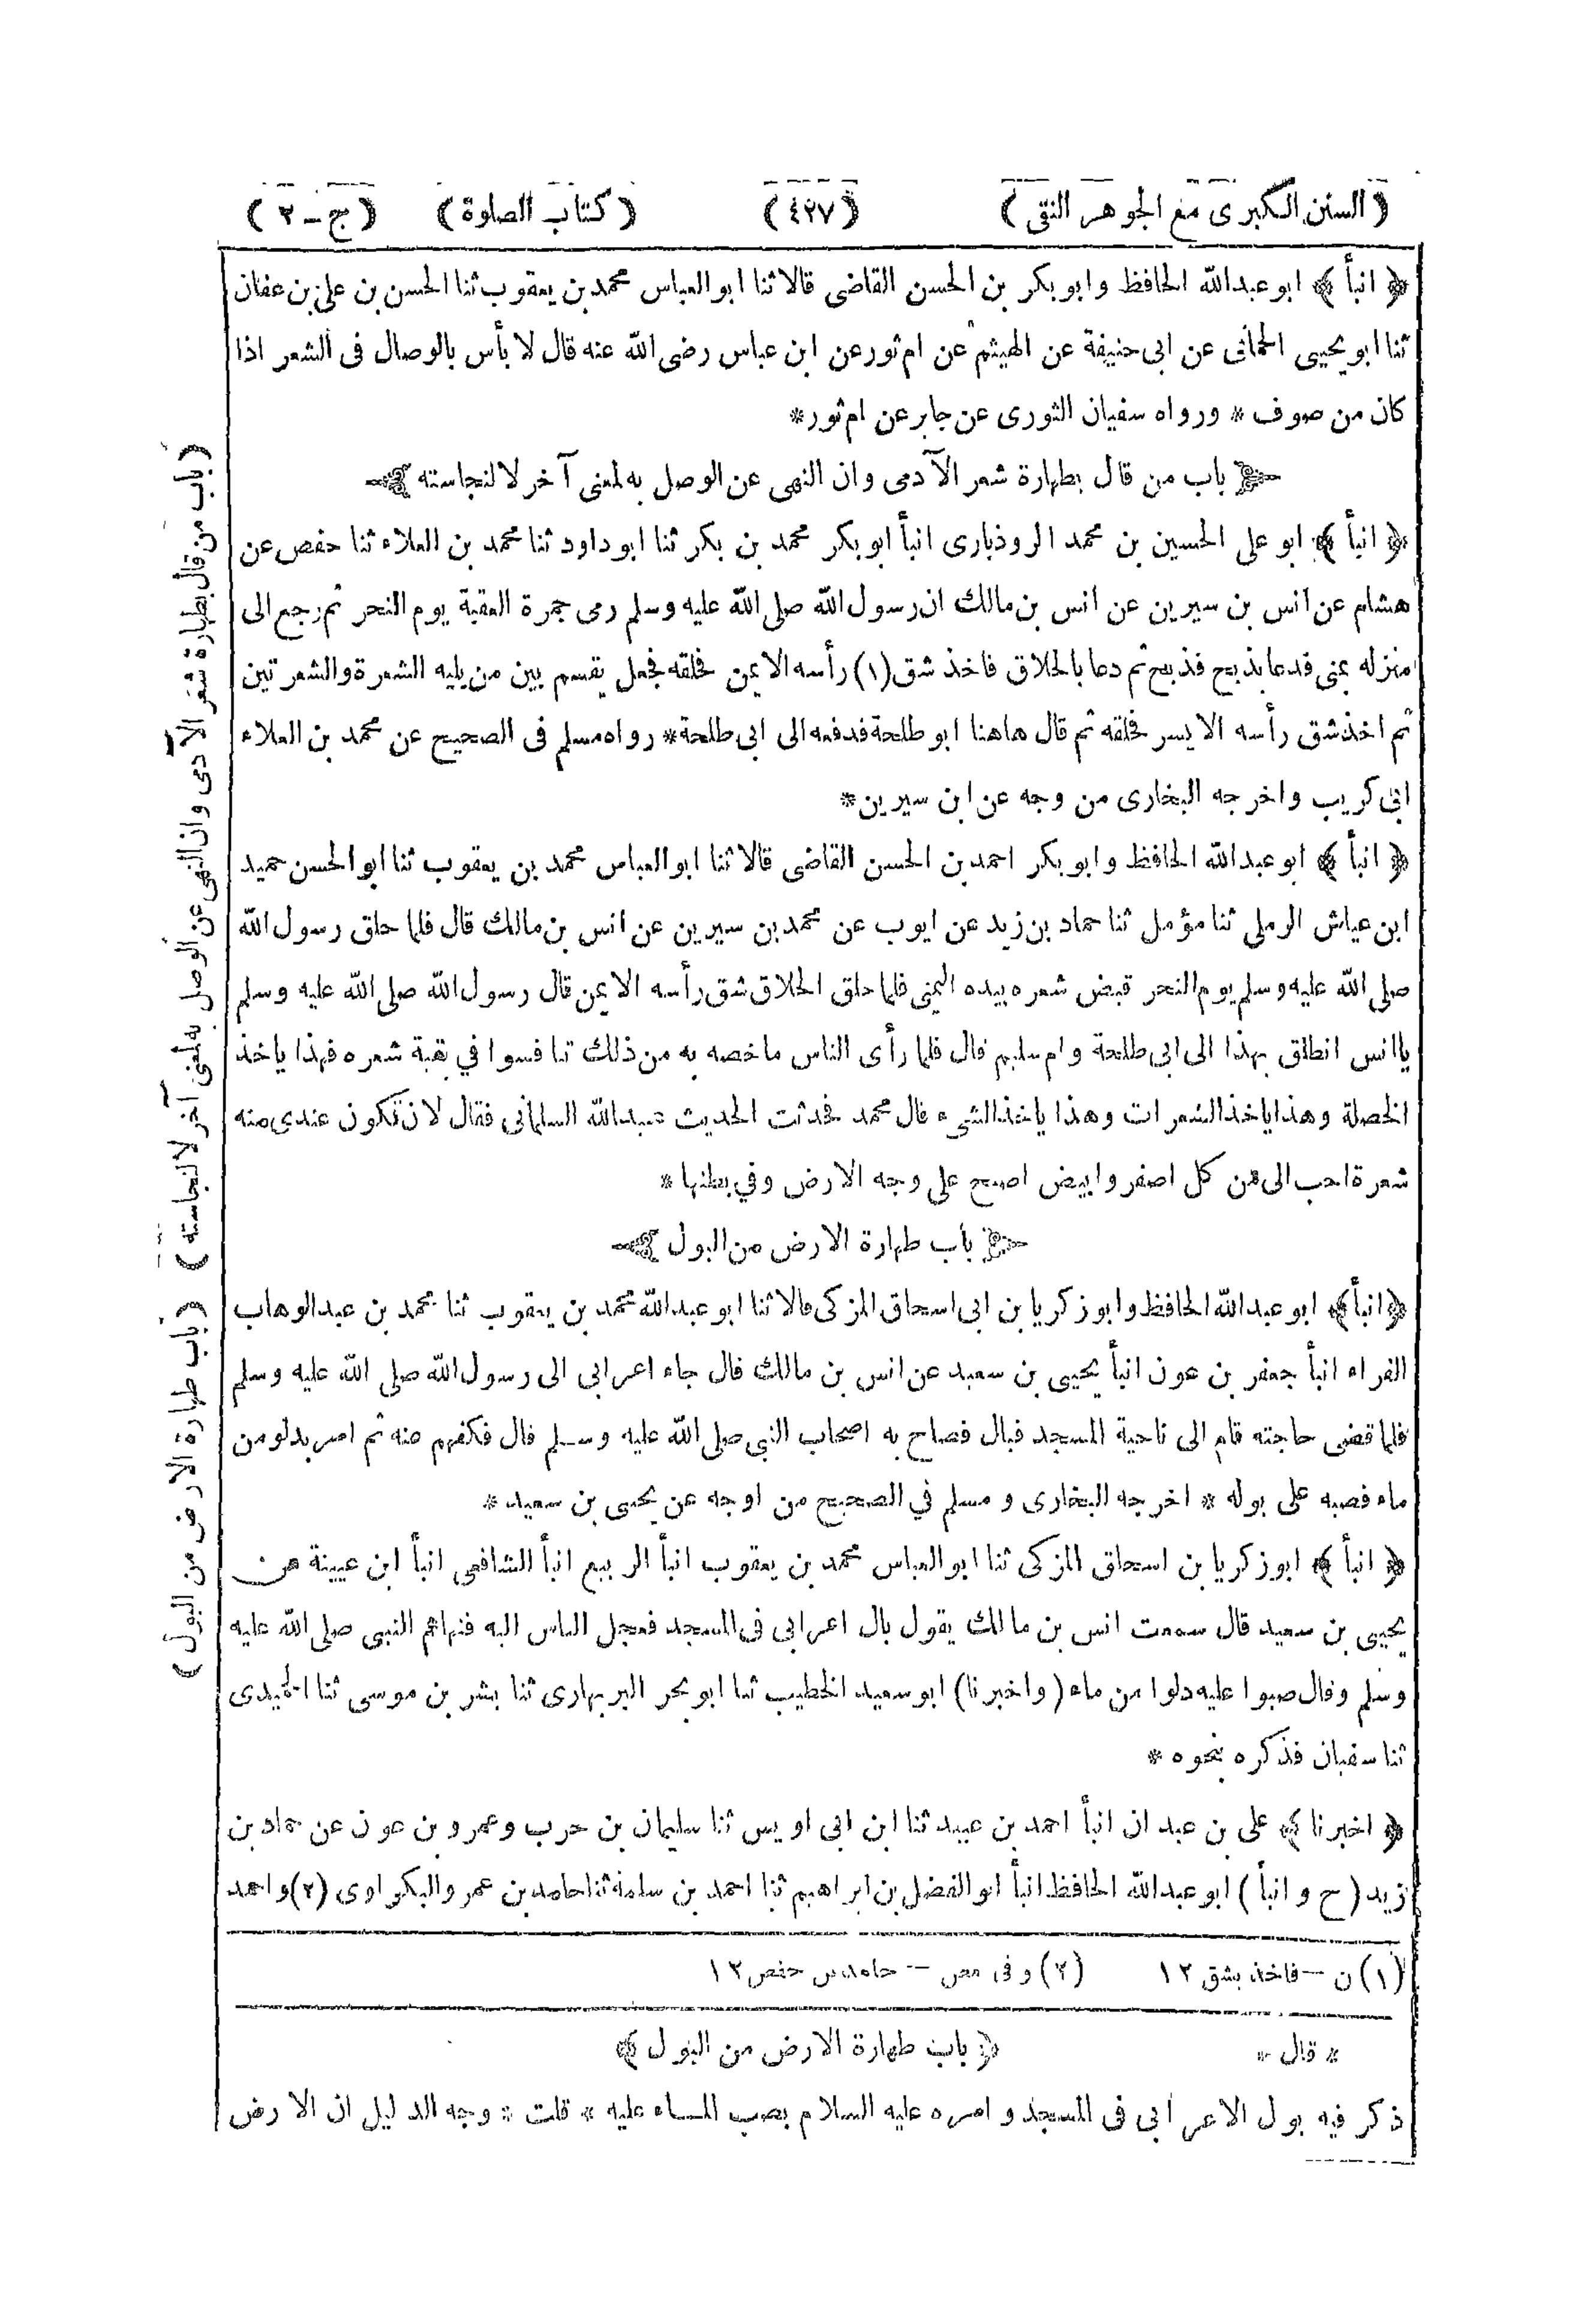 (السنن الكبرى مع الجوهر النقى) (٤٢٧) (كتاب الصلوة) (ج-٢)
﴿ انبأ ﴾ ابو عبدالله الحافظ وابو بكر بن الحسن القاضى قالا ثنا ابو العباس محمد بن يعقوب ثنا الحسن بن على بن عفان
ثنا ابو يحيى الحمانى عن ابى حنيفة عن الهيثم عن ام ثور عن ابن عباس رضى الله عنه قال لا بأس بالوصال فى الشعر اذا
كان من صوف * ورواه سفيان الثورى عن جابر عن ام ثور*
باب من قال بطهارة شعر الآدمى وان النهى عن الوصل به لمعنى آخر لا لنجاسته
﴿ انبأ ﴾ ابو على الحسين بن محمد الروذبارى انبأ ابو بكر محمد بن بكر ثنا ابو داود ثنا محمد بن العلاء ثنا حفص عن
هشام عن انس بن سيرين عن انس بن مالك ان رسول الله صلى الله عليه وسلم رمى جمرة العقبة يوم النحر ثم رجع الى
منزله بمنى فدعا بذبح فذبح ثم دعا بالحلاق فاخذ شق (١) رأسه الايمن فحلقه فجعل يقسم بين من يليه الشعرة والشعرتين
ثم اخذ شق رأسه الايسر فحلقه ثم قال هاهنا ابو طلحة فدفعه الى ابى طلحة* رواه مسلم فى الصحيح عن محمد بن العلاء
ابى كريب واخرجه البخارى من وجه عن ابن سيرين*
﴿ انبأ ﴾ ابو عبدالله الحافظ وابو بكر احمد بن الحسن القاضى قالا ثنا ابو العباس محمد بن يعقوب ثنا ابو الحسن حميد
ابن عياش الرملى ثنا مؤمل ثنا حماد بن زيد عن ايوب عن محمد بن سيرين عن انس بن مالك قال فلما حلق رسول الله
صلى الله عليه وسلم يوم النحر قبض شعره بيده اليمنى فلما حلق الحلاق شق رأسه الايمن قال رسول الله صلى الله عليه وسلم
يا انس انطلق بهذا الى ابى طلحة وام سليم قال فلما رأى الناس ما خصه به من ذلك تنافسوا في بقية شعره فهذا ياخذ
الخصلة وهذا ياخذ الشعرات وهذا ياخذ الشىء قال محمد فحدثت الحديث عبدالله السلمانى فقال لان تكون عندى منه
شعرة احب الى من كل اصفر وابيض اصبح على وجه الارض وفي بطنها *
باب طهارة الارض من البول
﴿انبأ﴾ ابو عبدالله الحافظ وابو زكريا بن ابى اسحاق المزكى قالا ثنا ابو عبدالله محمد بن يعقوب ثنا محمد بن عبدالوهاب
الفراء انبأ جعفر بن عون انبأ يحيى بن سعيد عن انس بن مالك قال جاء اعرابى الى رسول الله صلى الله عليه وسلم
فلما قضى حاجته قام الى ناحية المسجد فبال فصاح به اصحاب النبى صلى الله عليه وسلم قال فكفهم عنه ثم امر بدلو من
ماء فصبه على بوله * اخرجه البخارى و مسلم في الصحيح من اوجه عن يحيى بن سعيد *
﴿ انبأ ﴾ ابو زكريا بن اسحاق المزكى ثنا ابو العباس محمد بن يعقوب انبأ الربيع انبأ الشافعى انبأ ابن عيينة عن
يحيى بن سعيد قال سمعت انس بن مالك يقول بال اعرابى فى المسجد فعجل الناس اليه فنهاهم النبى صلى الله عليه
وسلم وقال صبوا عليه دلوا من ماء (واخبرنا) ابو سعيد الخطيب ثنا ابو بحر البربهارى ثنا بشر بن موسى ثنا الحميدى
ثنا سفيان فذكره بنحوه *
﴿ اخبرنا ﴾ على بن عبدان انبأ احمد بن عبيد ثنا ابن ابى اويس ثنا سليمان بن حرب وعمرو بن عون عن حماد بن
زيد (ح و انبأ) ابو عبدالله الحافظ انبأ ابو الفضل بن ابراهيم ثنا احمد بن سلمة ثنا حامد بن عمر والبكراوى (٢) و احمد
(١) ن - فاخذ بشق ١٢ (٢) و فى مص - حامد بن حفص ١٢
* قال * ﴿ باب طهارة الارض من البول ﴾
ذكر فيه بول الاعرابى فى المسجد و امره عليه السلام بصب المـاء عليه * قلت * وجه الدليل ان الارض
(باب من قال بطهارة شعر الآدمى وان النهى عن الوصل به لمعنى آخر لا لنجاسته) (باب طهارة الارض من البول)